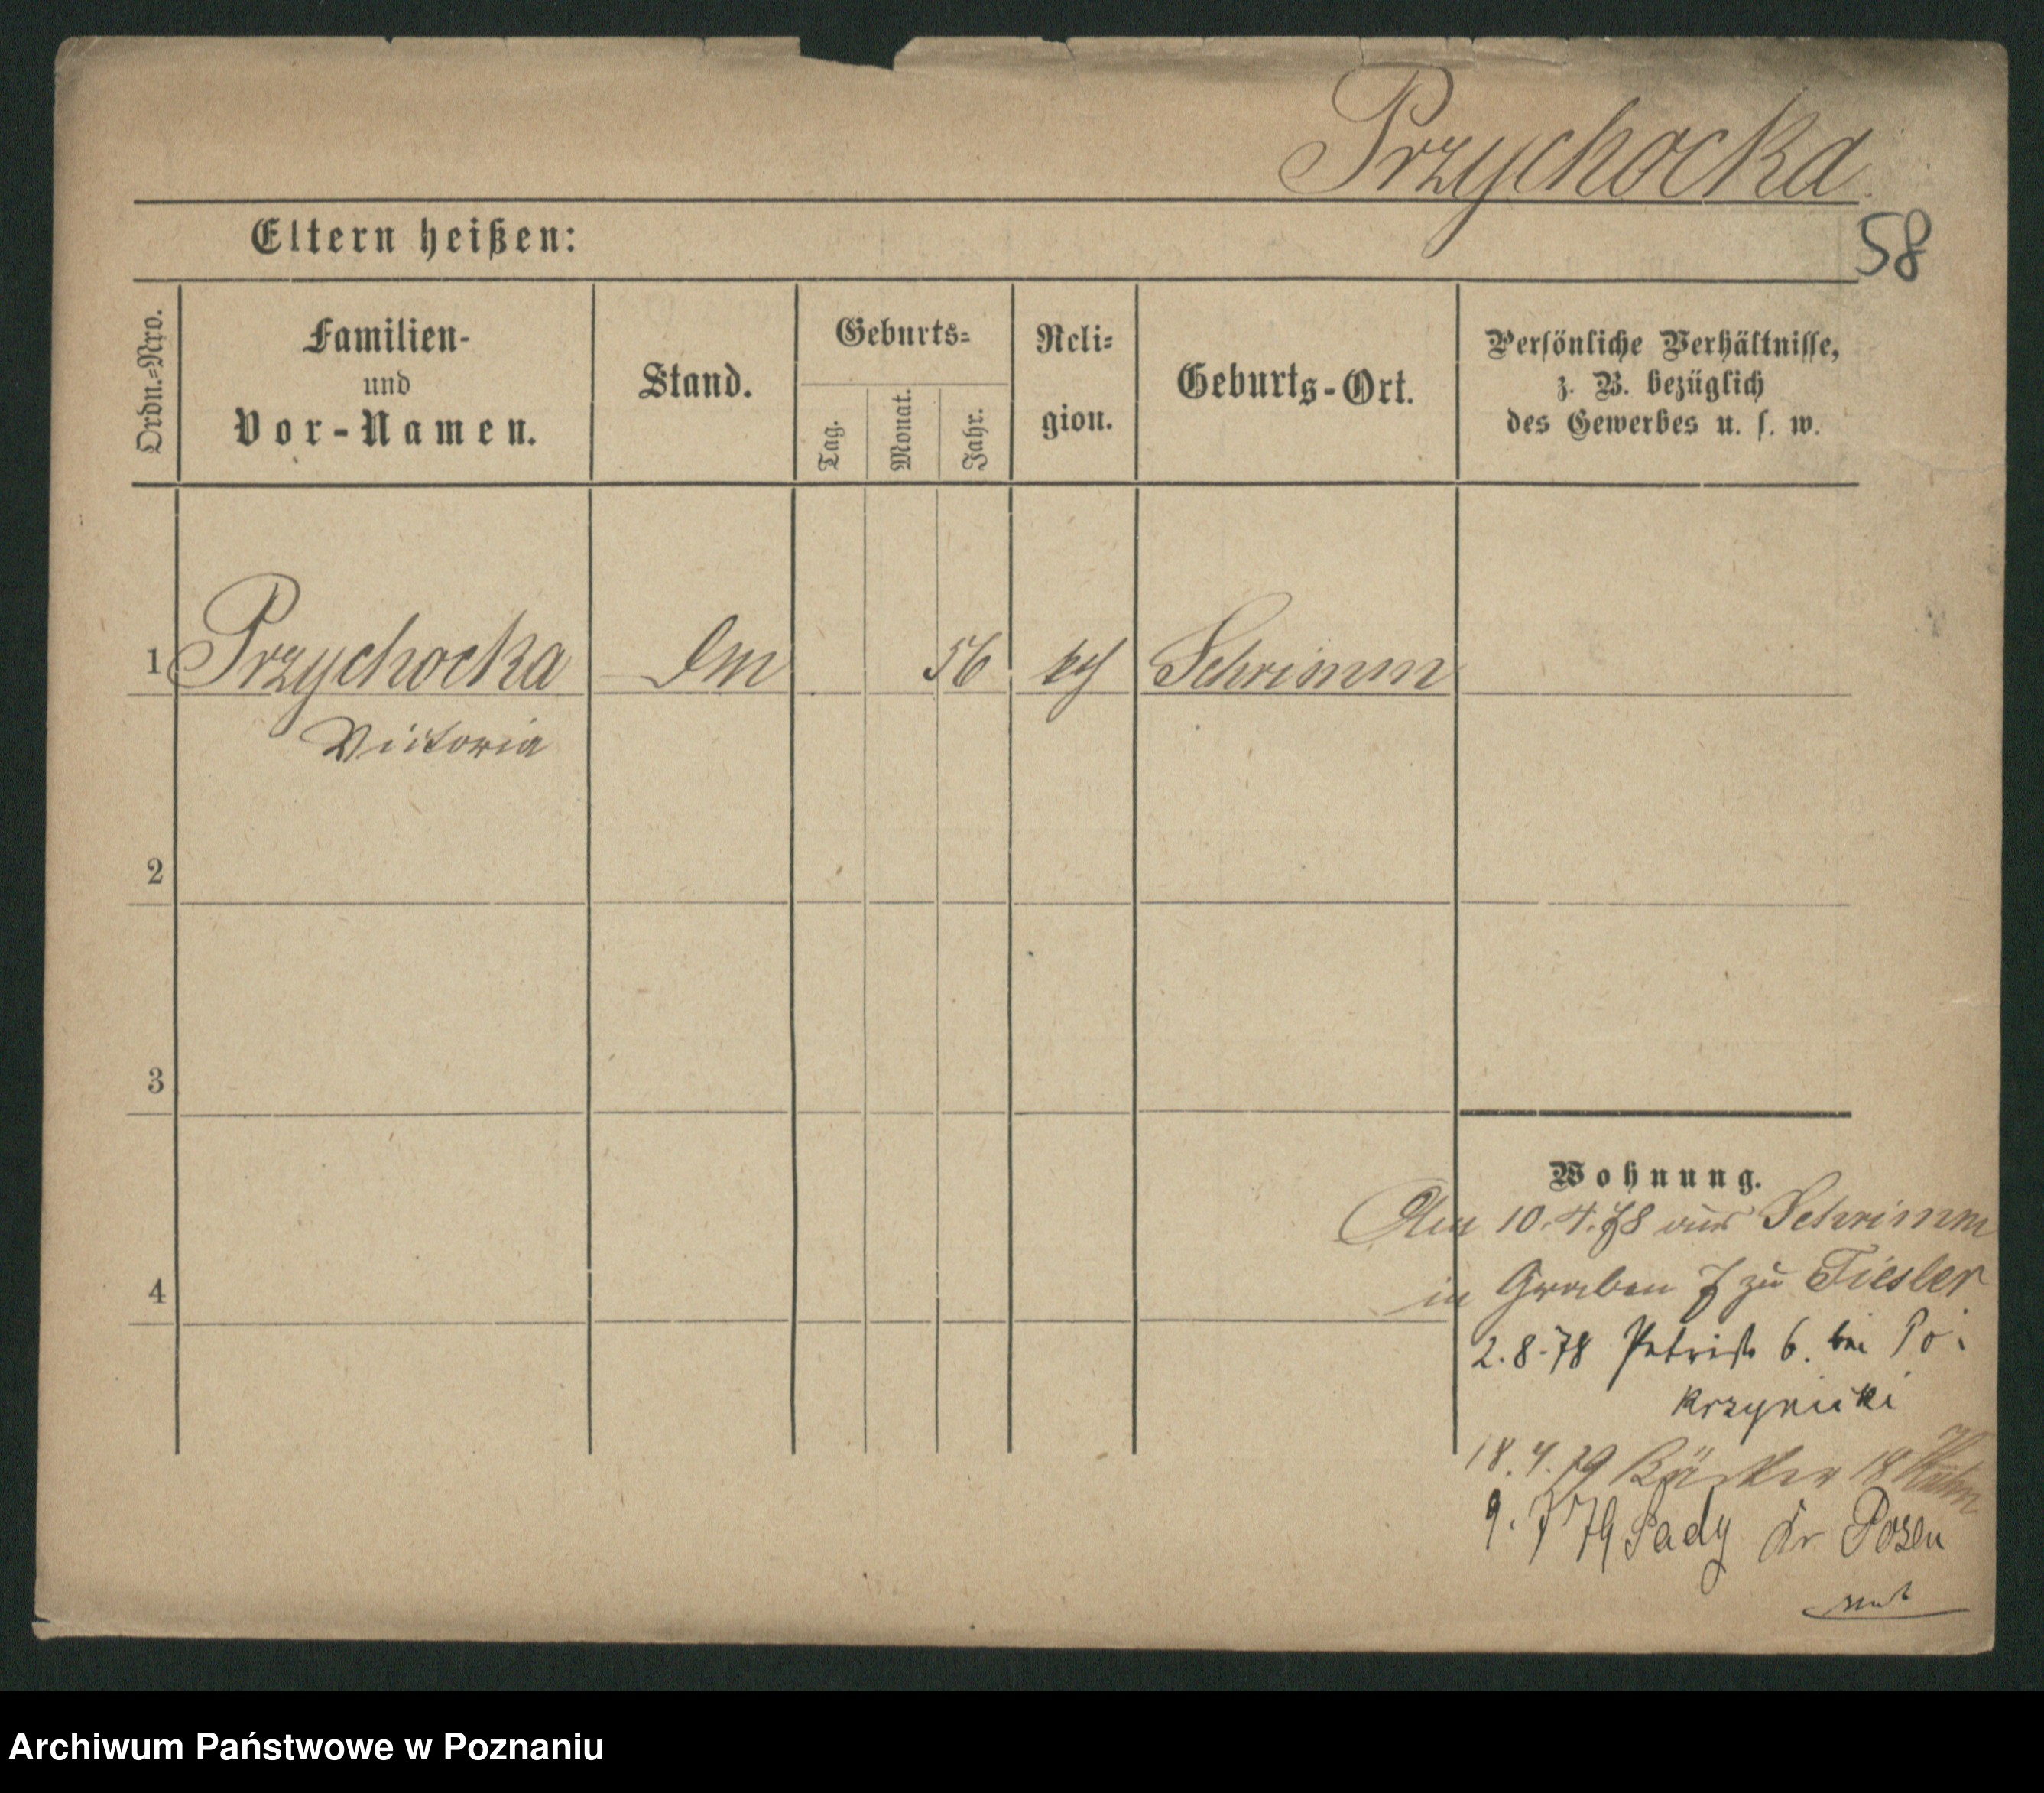 Przychocka
58
Eltern heißen:
Ordn.-Nro.
Familien-
und
Vor-Namen.
Stand.
Geburts-
Tag.
Monat.
Jahr.
Reli-
gion.
Geburts-Ort.
Persönliche Verhältnisse,
z. B. bezüglich
des Gewerbes u. s. w.
1 Przychocka Dm 56 kth Schrimm
Victoria
2
3
4
Wohnung.
Am 10.4.78 aus Schrimm
in Graben 7 zu Tiesler
2.8.78 Petristr 6. bei
Krzynicki
18.4.79 Bäcker 18
9.7 79 Sady Kr. Posen
Archiwum Państwowe w Poznaniu